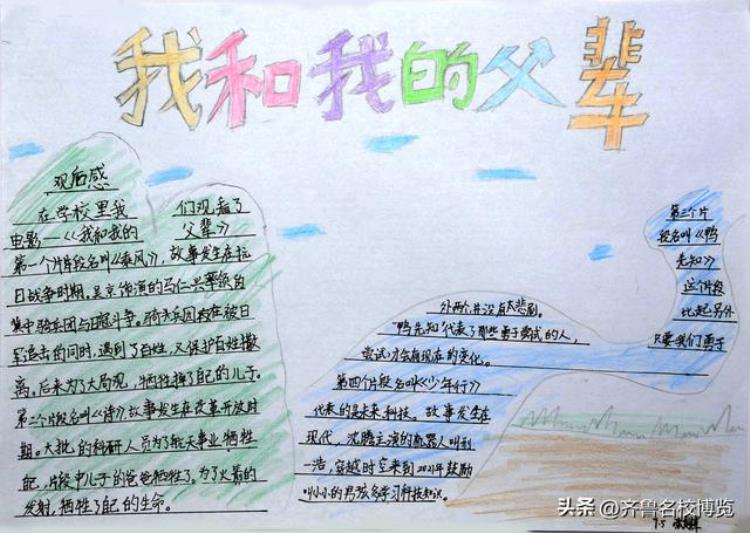 我和我的父辈
观后感
在学校里我们观看了
电影——《我和我的父辈》
第一个片段名叫《乘风》，故事发生在抗
日战争时期，吴京饰演的马仁兴率领的
冀中骑兵团与日寇斗争。骑兵兵团在被日
军追击的同时，遇到了百姓，又保护百姓撤
离。后来为了大局观，牺牲掉了自己的儿子。
第二个片段名叫《诗》故事发生在改革开放时
期。大批的科研人员为了航天事业牺牲
自己，片段中儿子的爸爸牺牲了。为了火箭的
发射，牺牲了自己的生命。
第三个片
段名叫《鸭
先知》
这个片段
比起另外
外两个并没有太悲剧。
"鸭先知"代表了那些勇于尝试的人，
只要我们勇于
尝试，才会有现在的变化。
第四个片段名叫《少年行》
代表的是未来科技。故事发生在
现代，沈腾主演的机器人叫邢
一浩，穿越时空来到2021年鼓励
叫小小的男孩多学习科技知识。
7.5
头条 @齐鲁名校博览